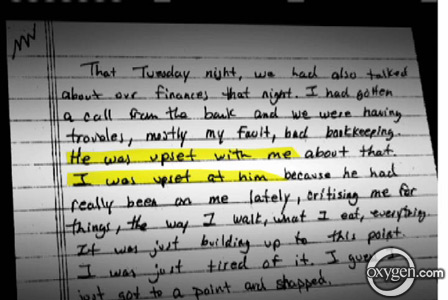 That Tuesday night, we had also talked
about our finances that night. I had gotten
a call from the bank and we were having
troubles, mostly my fault, bad bookkeeping.
He was upset with me about that.
I was upset at him because he had
really been on me lately, critising me for
things, the way I walk, what I eat, everything.
It was just building up to this point.
I was just tired of it. I guess
just got to a point and snapped.
oxygen.com